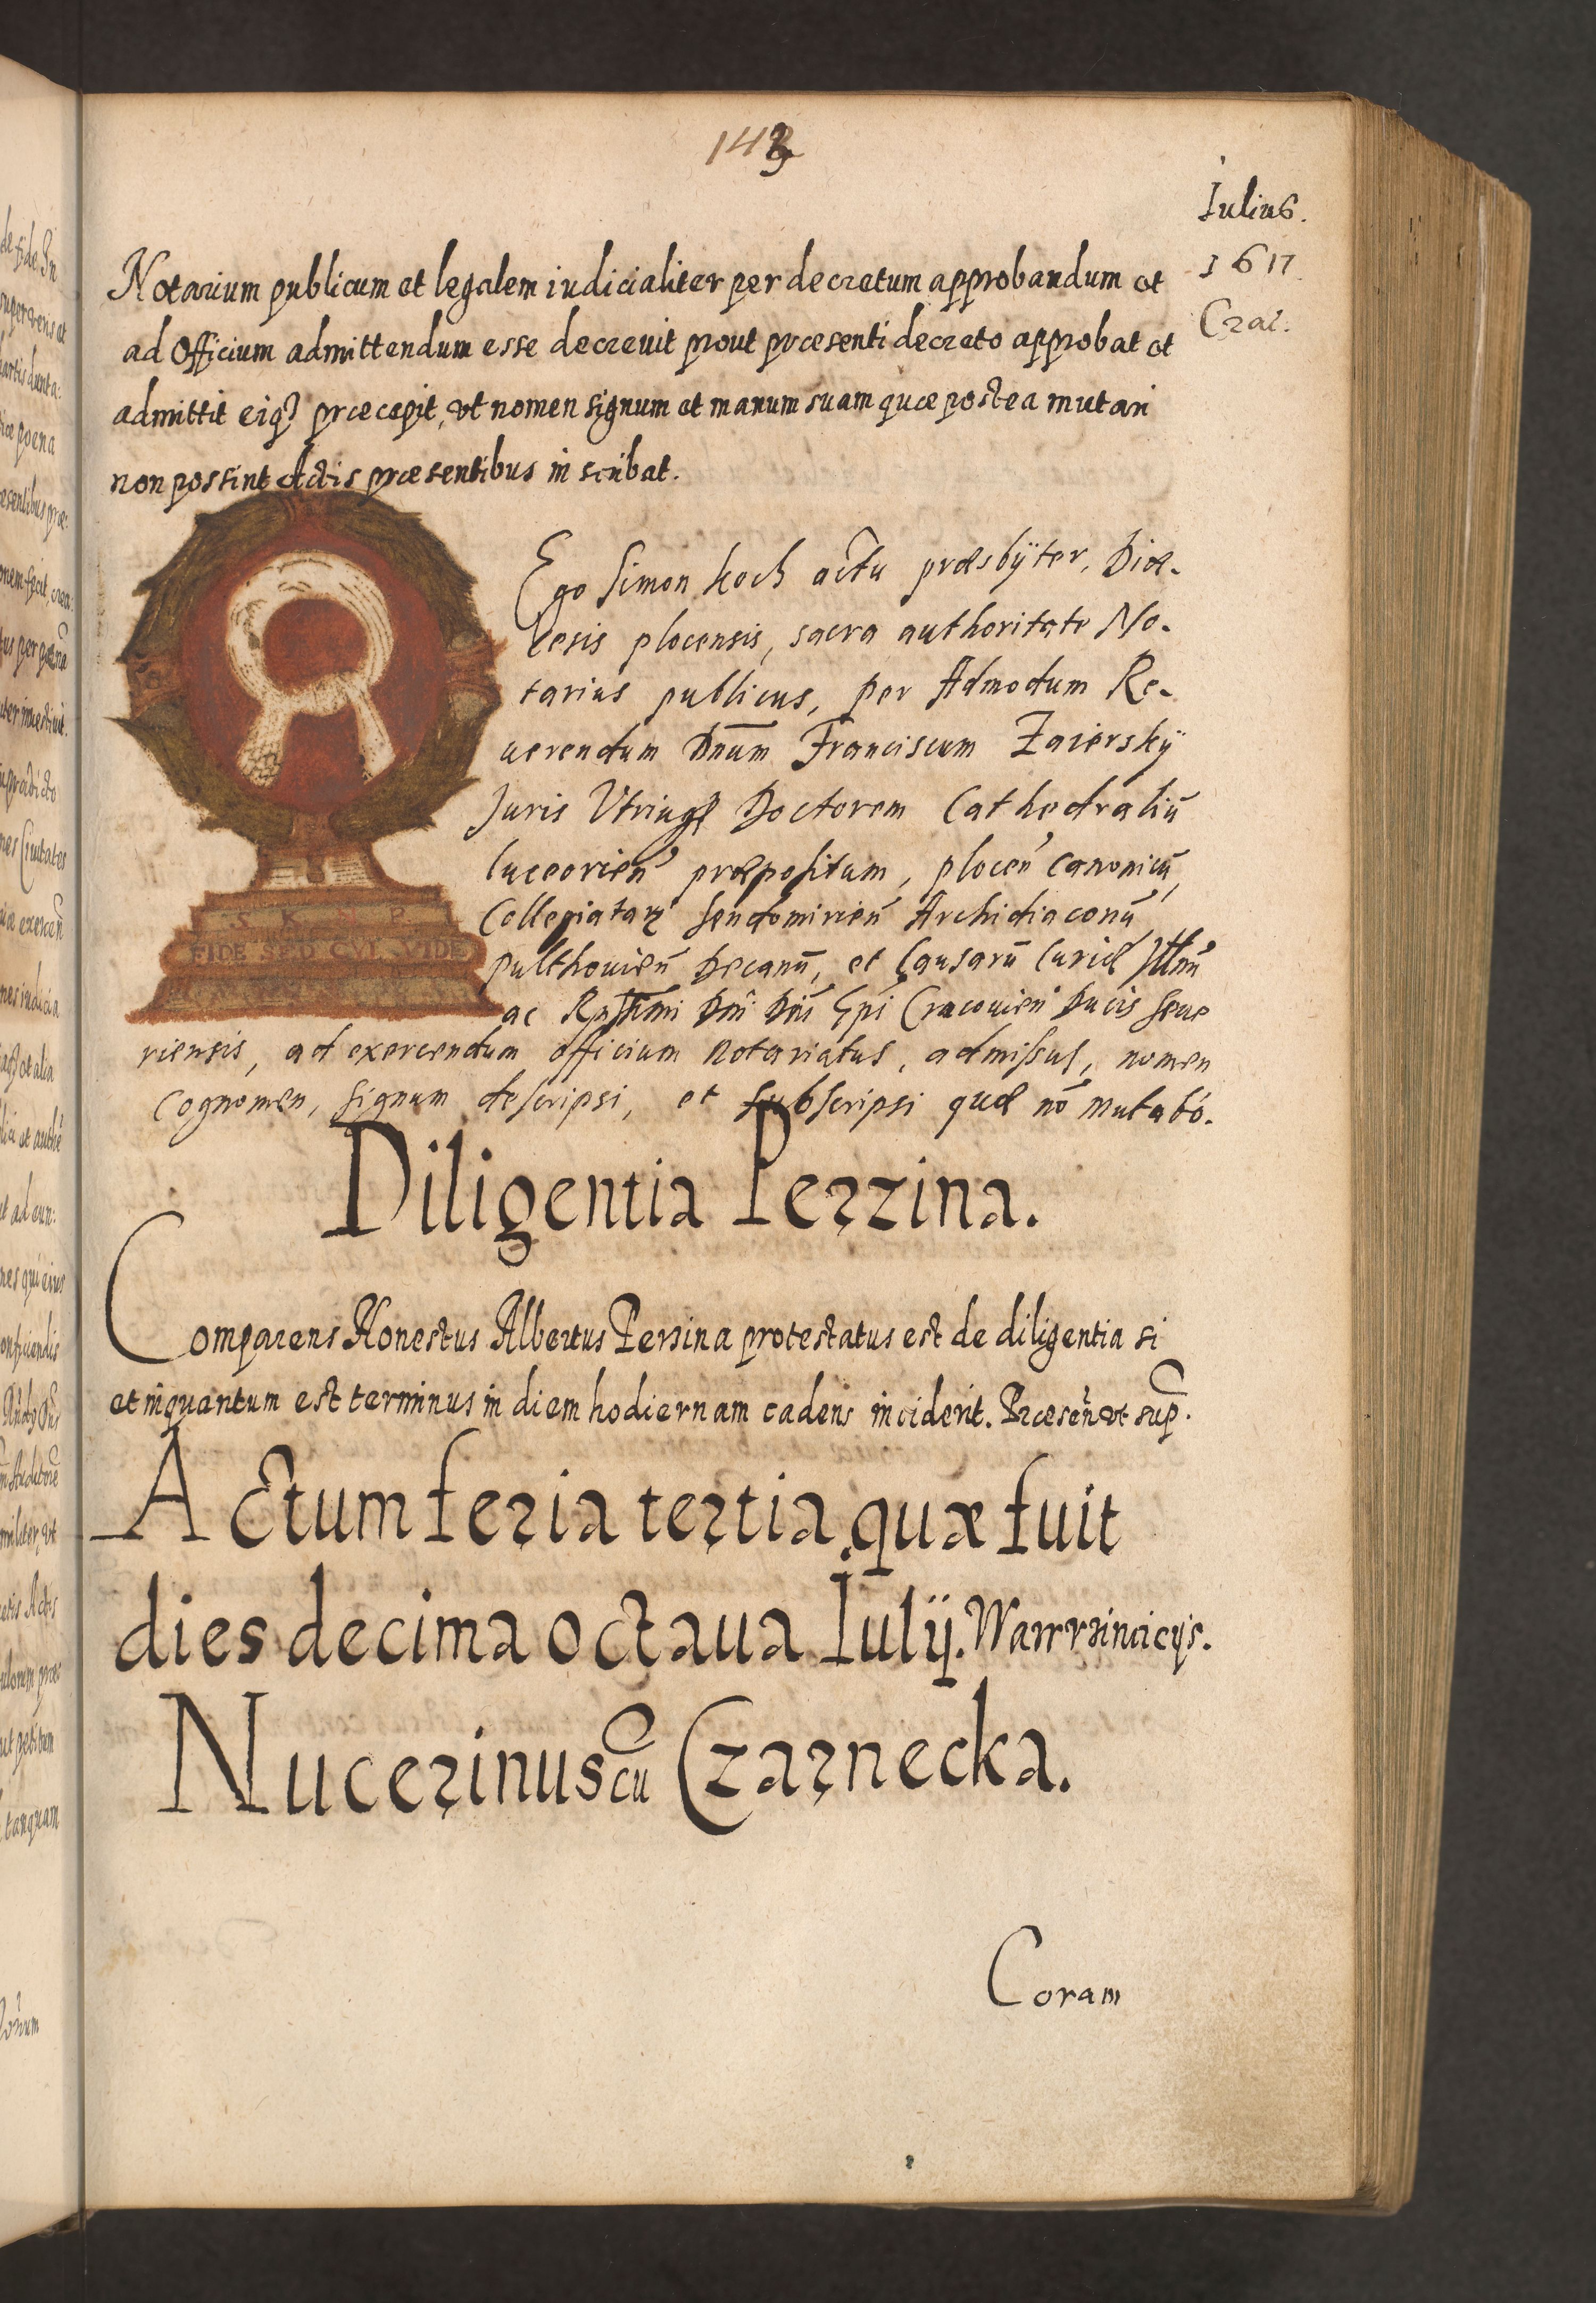 143
Iulius.
1617
Crac.
Notarium publicum et legalem iudicialiter per decretum approbandum et
ad Officium admittendum esse decreuit prout præsenti decreto approbat et
admittit eiqꝫ præcepit, vt nomen signum et manum suam quæ postea mutari
non possint Actis præsentibus inscribat.
S K S P
FIDE SED CVI VIDE
Ego Simon Koch actu præsbÿter, Diæ-
cesis plocensis, sacra authoritate No-
tarius publicus, per Admodum Re-
uerendum Dnum Franciscum Zaierskÿ
Juris Vtriusqꝫ Doctorem Cathedraliū
luceorien̄ præpositum, plocen̄ canonicū,
Collegiatarꝫ Sendomirien̄ Archidiaconū
pulthouien̄ Decanū, et Causarū Curiæ Illmi
ac Rndissimi Dni Dni Epi Cracouien̄ Ducis Seue
riensis, ad exercendum officium notariatus, admissus, nomen
cognomen, signum descripsi, et subscripsi quæ nō mutabo.
Diligentia Perzina.
Comparens Honestus Albertus Persina protestatus est de diligentia si
et inquantum est terminus in diem hodiernam cadens inciderit. Præsen̄ vt sup.
Actum feria tertia, quæ fuit
dies decima octaua Iulÿ.
Nucerinus cū Czarnecka.
Coram